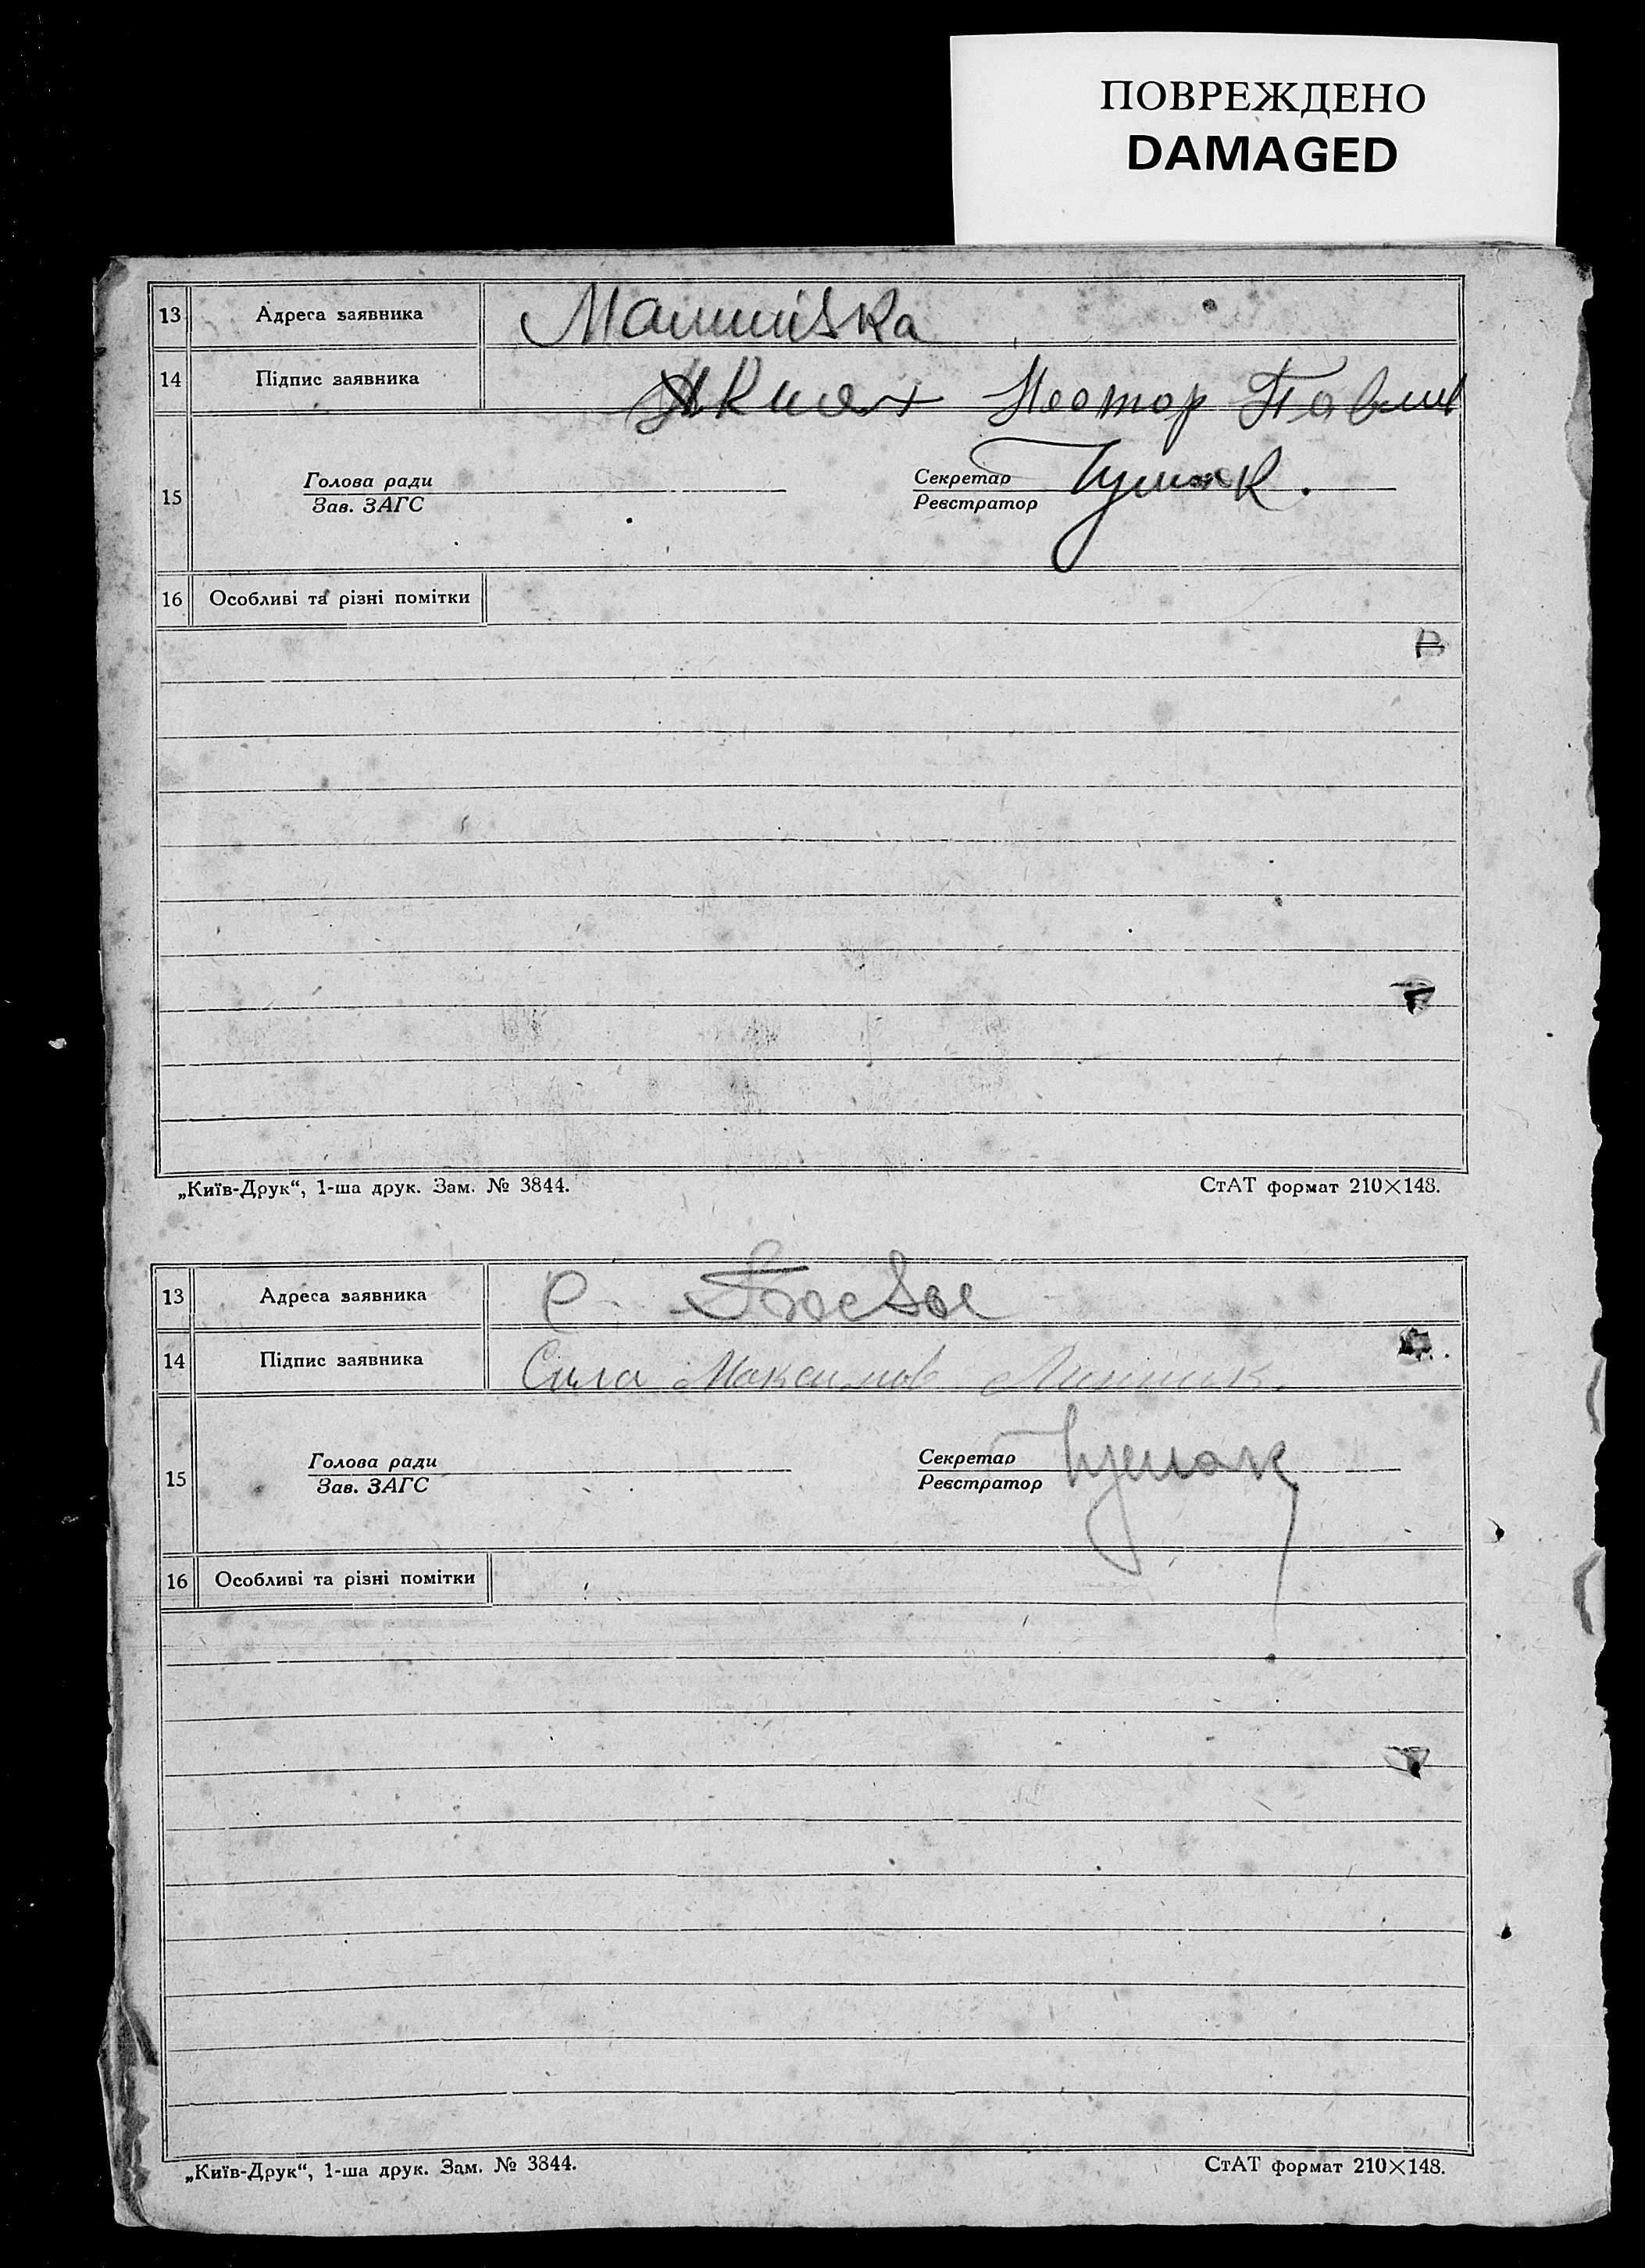 ПОВРЕЖДЕНО
DAMAGED
13 Адреса заявника
14 Підпис заявника Нестор Павлив
15 Голова ради Секретар Гумак.
Зав. ЗАГС Реєстратор
16 Особливі та різні помітки
„Київ-Друк“, 1-ша друк. Зам. № 3844. СтАТ формат 210×148.
13 Адреса заявника с.
14 Підпис заявника Сила Максимов
15 Голова ради Секретар Гумак
Зав. ЗАГС Реєстратор
16 Особливі та різні помітки
„Київ-Друк“, 1-ша друк. Зам. № 3844. СтАТ формат 210×148.